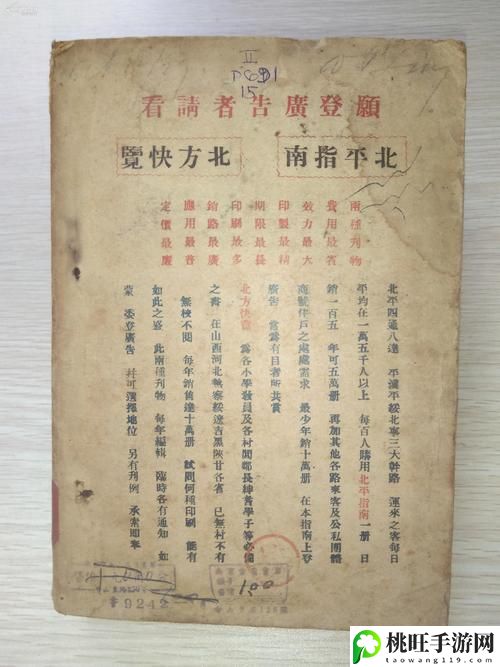 II
DC91
15
願登廣告者請看
北平指南
北方快覽
兩種刊物
費用最省
效力最大
印製最精
期限最長
印刷最多
銷路最廣
應用最普
定價最廉
北平四通八達 平漢平綏北寧三大幹路 運來之客每日
平均在一萬五千人以上 每百人購用北平指南一册 日
銷一百五 年可五萬册 再加其他各路來客及公私團體
商號住戶之處處需求 最少年銷十萬册 在本指南上登
廣告 當為有目者所共賞
北方快覽 為各小學教員及各村閭鄰長紳耆學子等必備
之書 在山西河北熱察綏遼吉黑陝甘各省 已無村不有
無校不閱 每年銷售達十萬册 試問何種印刷 能有
如此之盛 此兩種刊物 每年編輯 臨時各有通知 如
蒙 委登廣告 幷可選擇地位 另有刊例 承索即奉
1.00
書9242
桃旺手游网
taowang1119.com